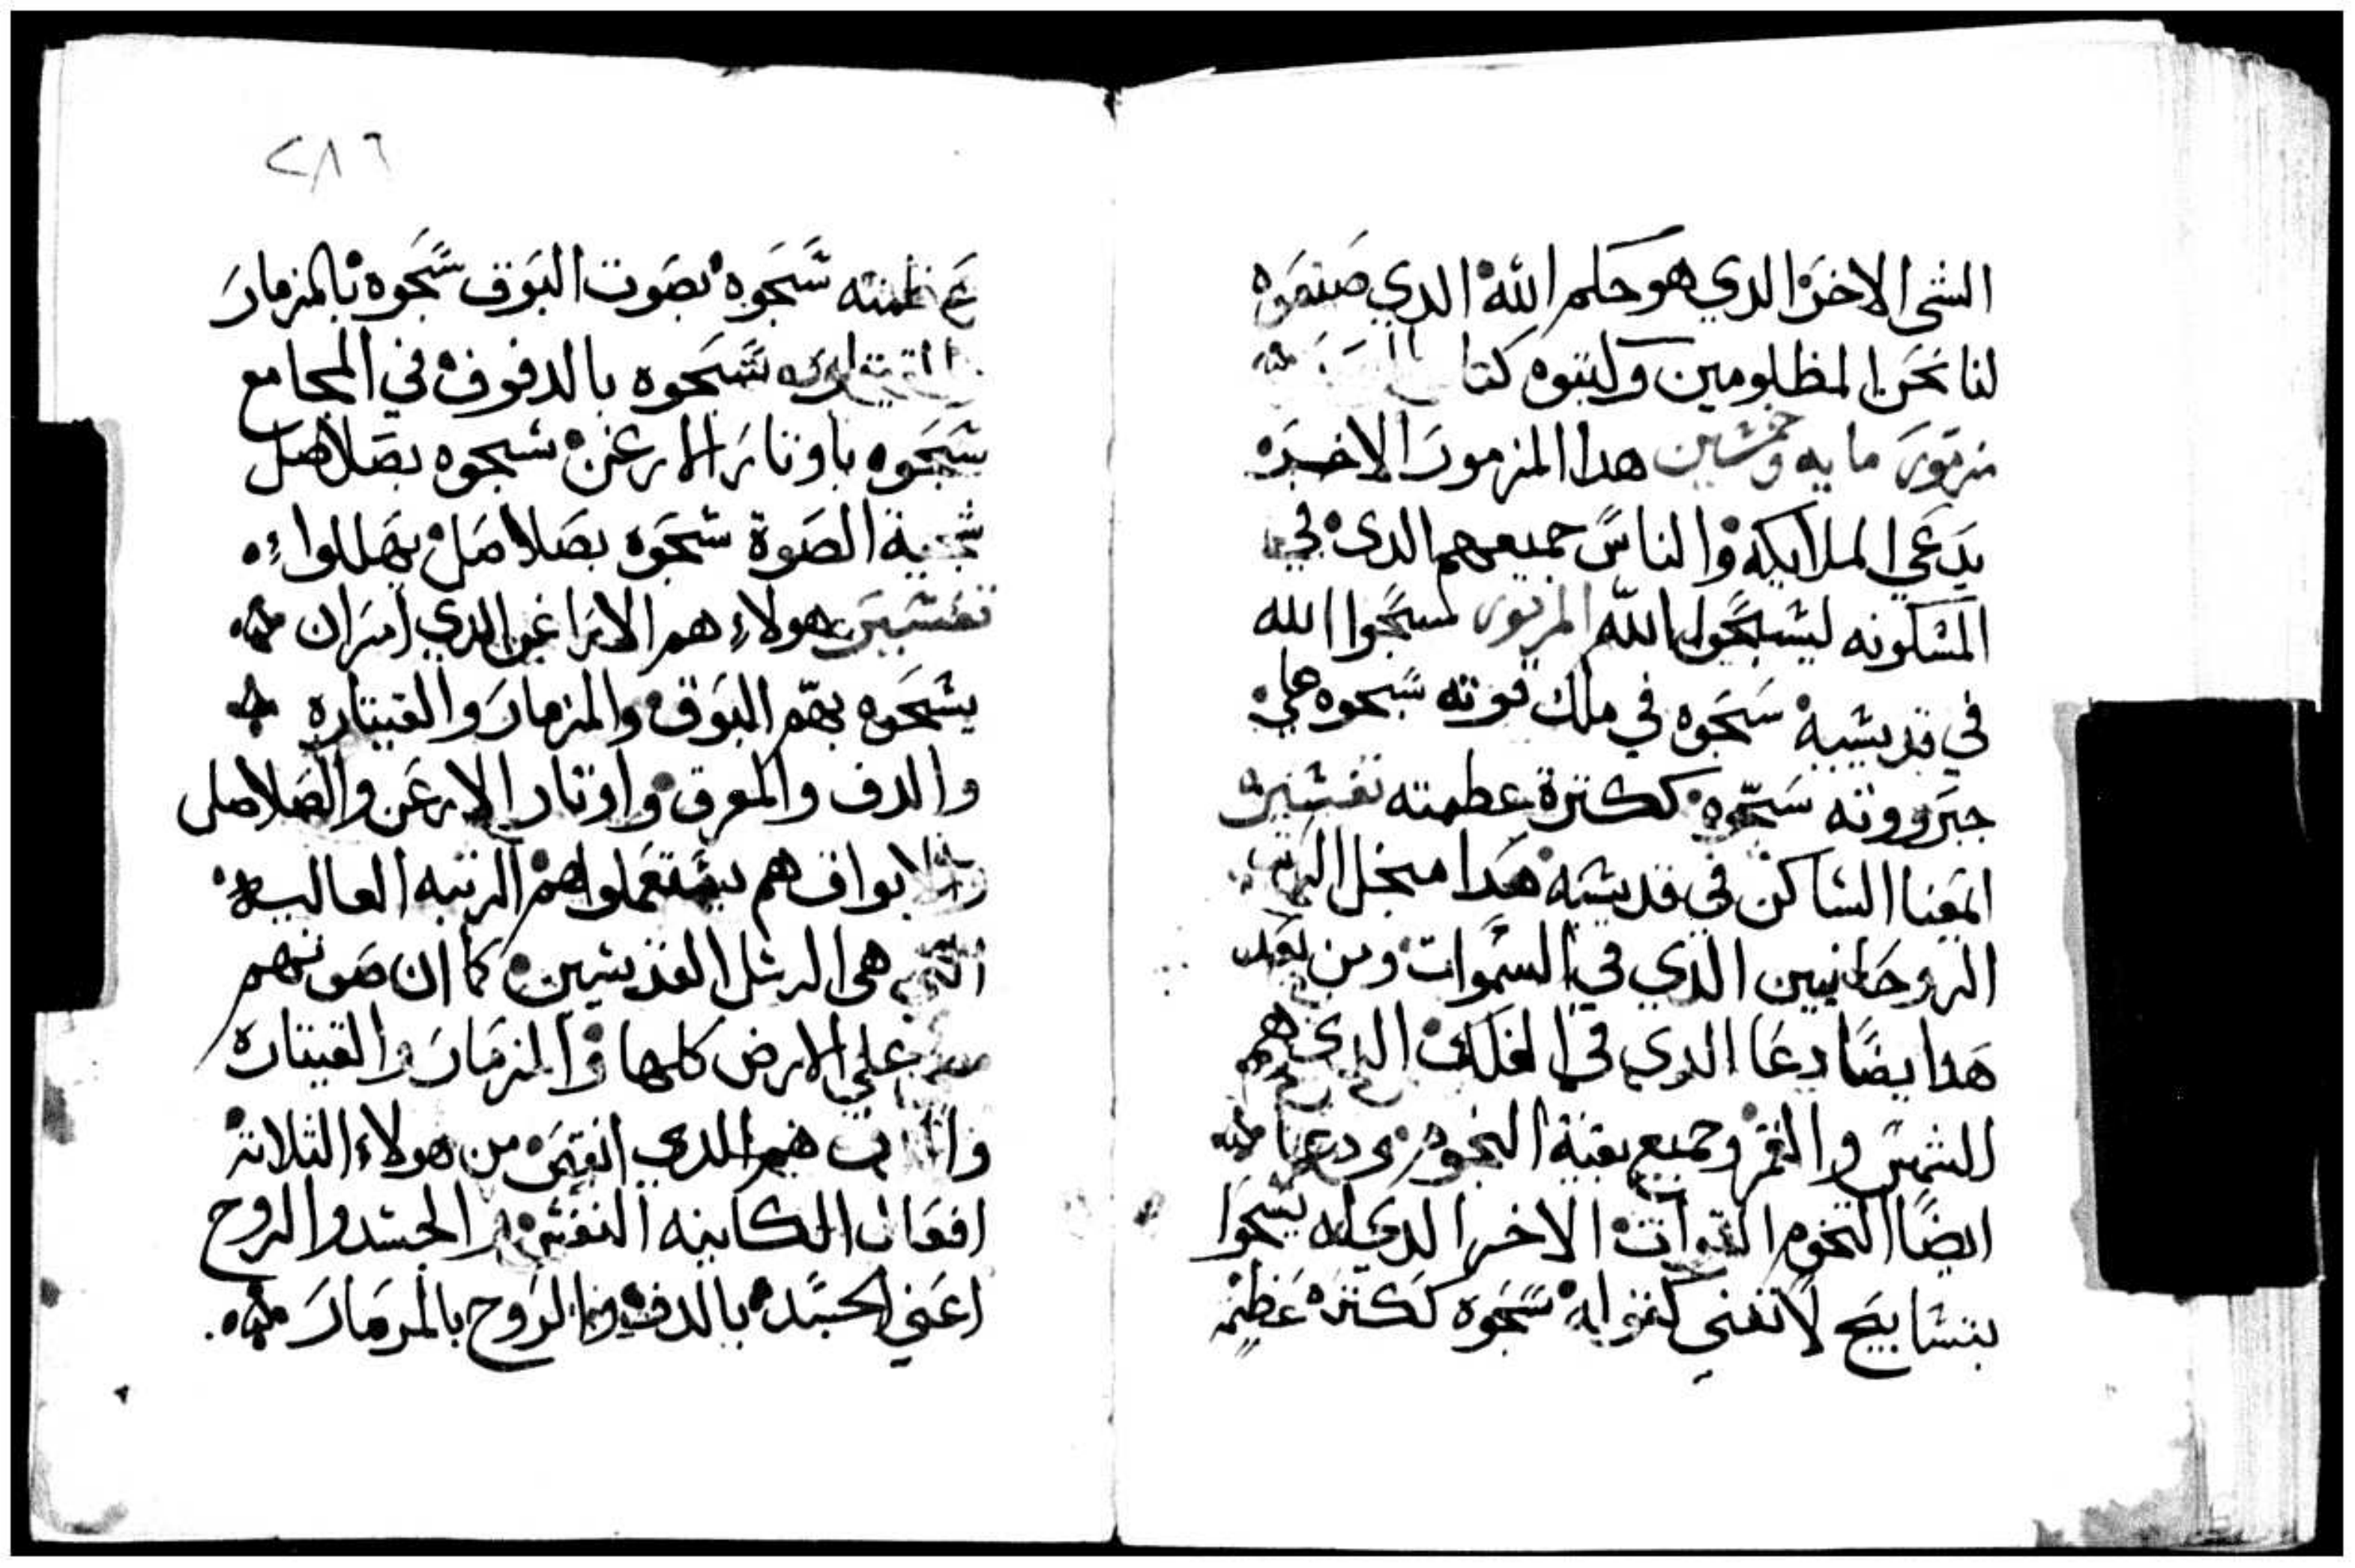 الشي الاخر الدي هو حكم الله الدي صنعوه
لنا نحن المظلومين وكتبوه كتا
مزمور مايه وخمسين هدا المزمور الاخير
يدعي الملايكه والناس جميعهم الدي في
المسكونه ليسبحوا الله المزمور سبحوا الله
في قديسيه سبحوه في ملك قوته سبحوه علي
جبرووته سبحوه ككترة عطمته تفسير
المعنا الساكن في قديسيه هدا
الروحانيين الدي في السموات ومن بعد
هدا ايضا دعا الدي في الفلك الدي هم
الشمس والقمر وجميع بقية النجوم ودعا
ايضا القوات الاخر الدي له يسبحوا
بتسابيح لا تفني سبحوه ككتره
٢٨٦
عظمته سبحوه بصوت البوق سبحوه بالمزمار
والقيتاره سبحوه بالدفوف في المجامع
سبحوه باوتار الارغن سبحوه بصلاصل
الصوة سبحوه بصلاصل يهللوا
تفسير هولاء هم الاراغن الدي امر ان
يسبحوه بهم البوق والمزمار والقيتاره
والدف واوتار الارغن والصلاصل
الابواق هم يستعملوهم الرتبه العاليه
التي هي الرسل القديسين كما ان صوتهم
علي الارض كلها والمزمار والقيتاره
هم الدي من هولاء التلاتة
افعال الكاينه النفس الجسد والروح
اعني الجسد بالدف والروح بالمزمار